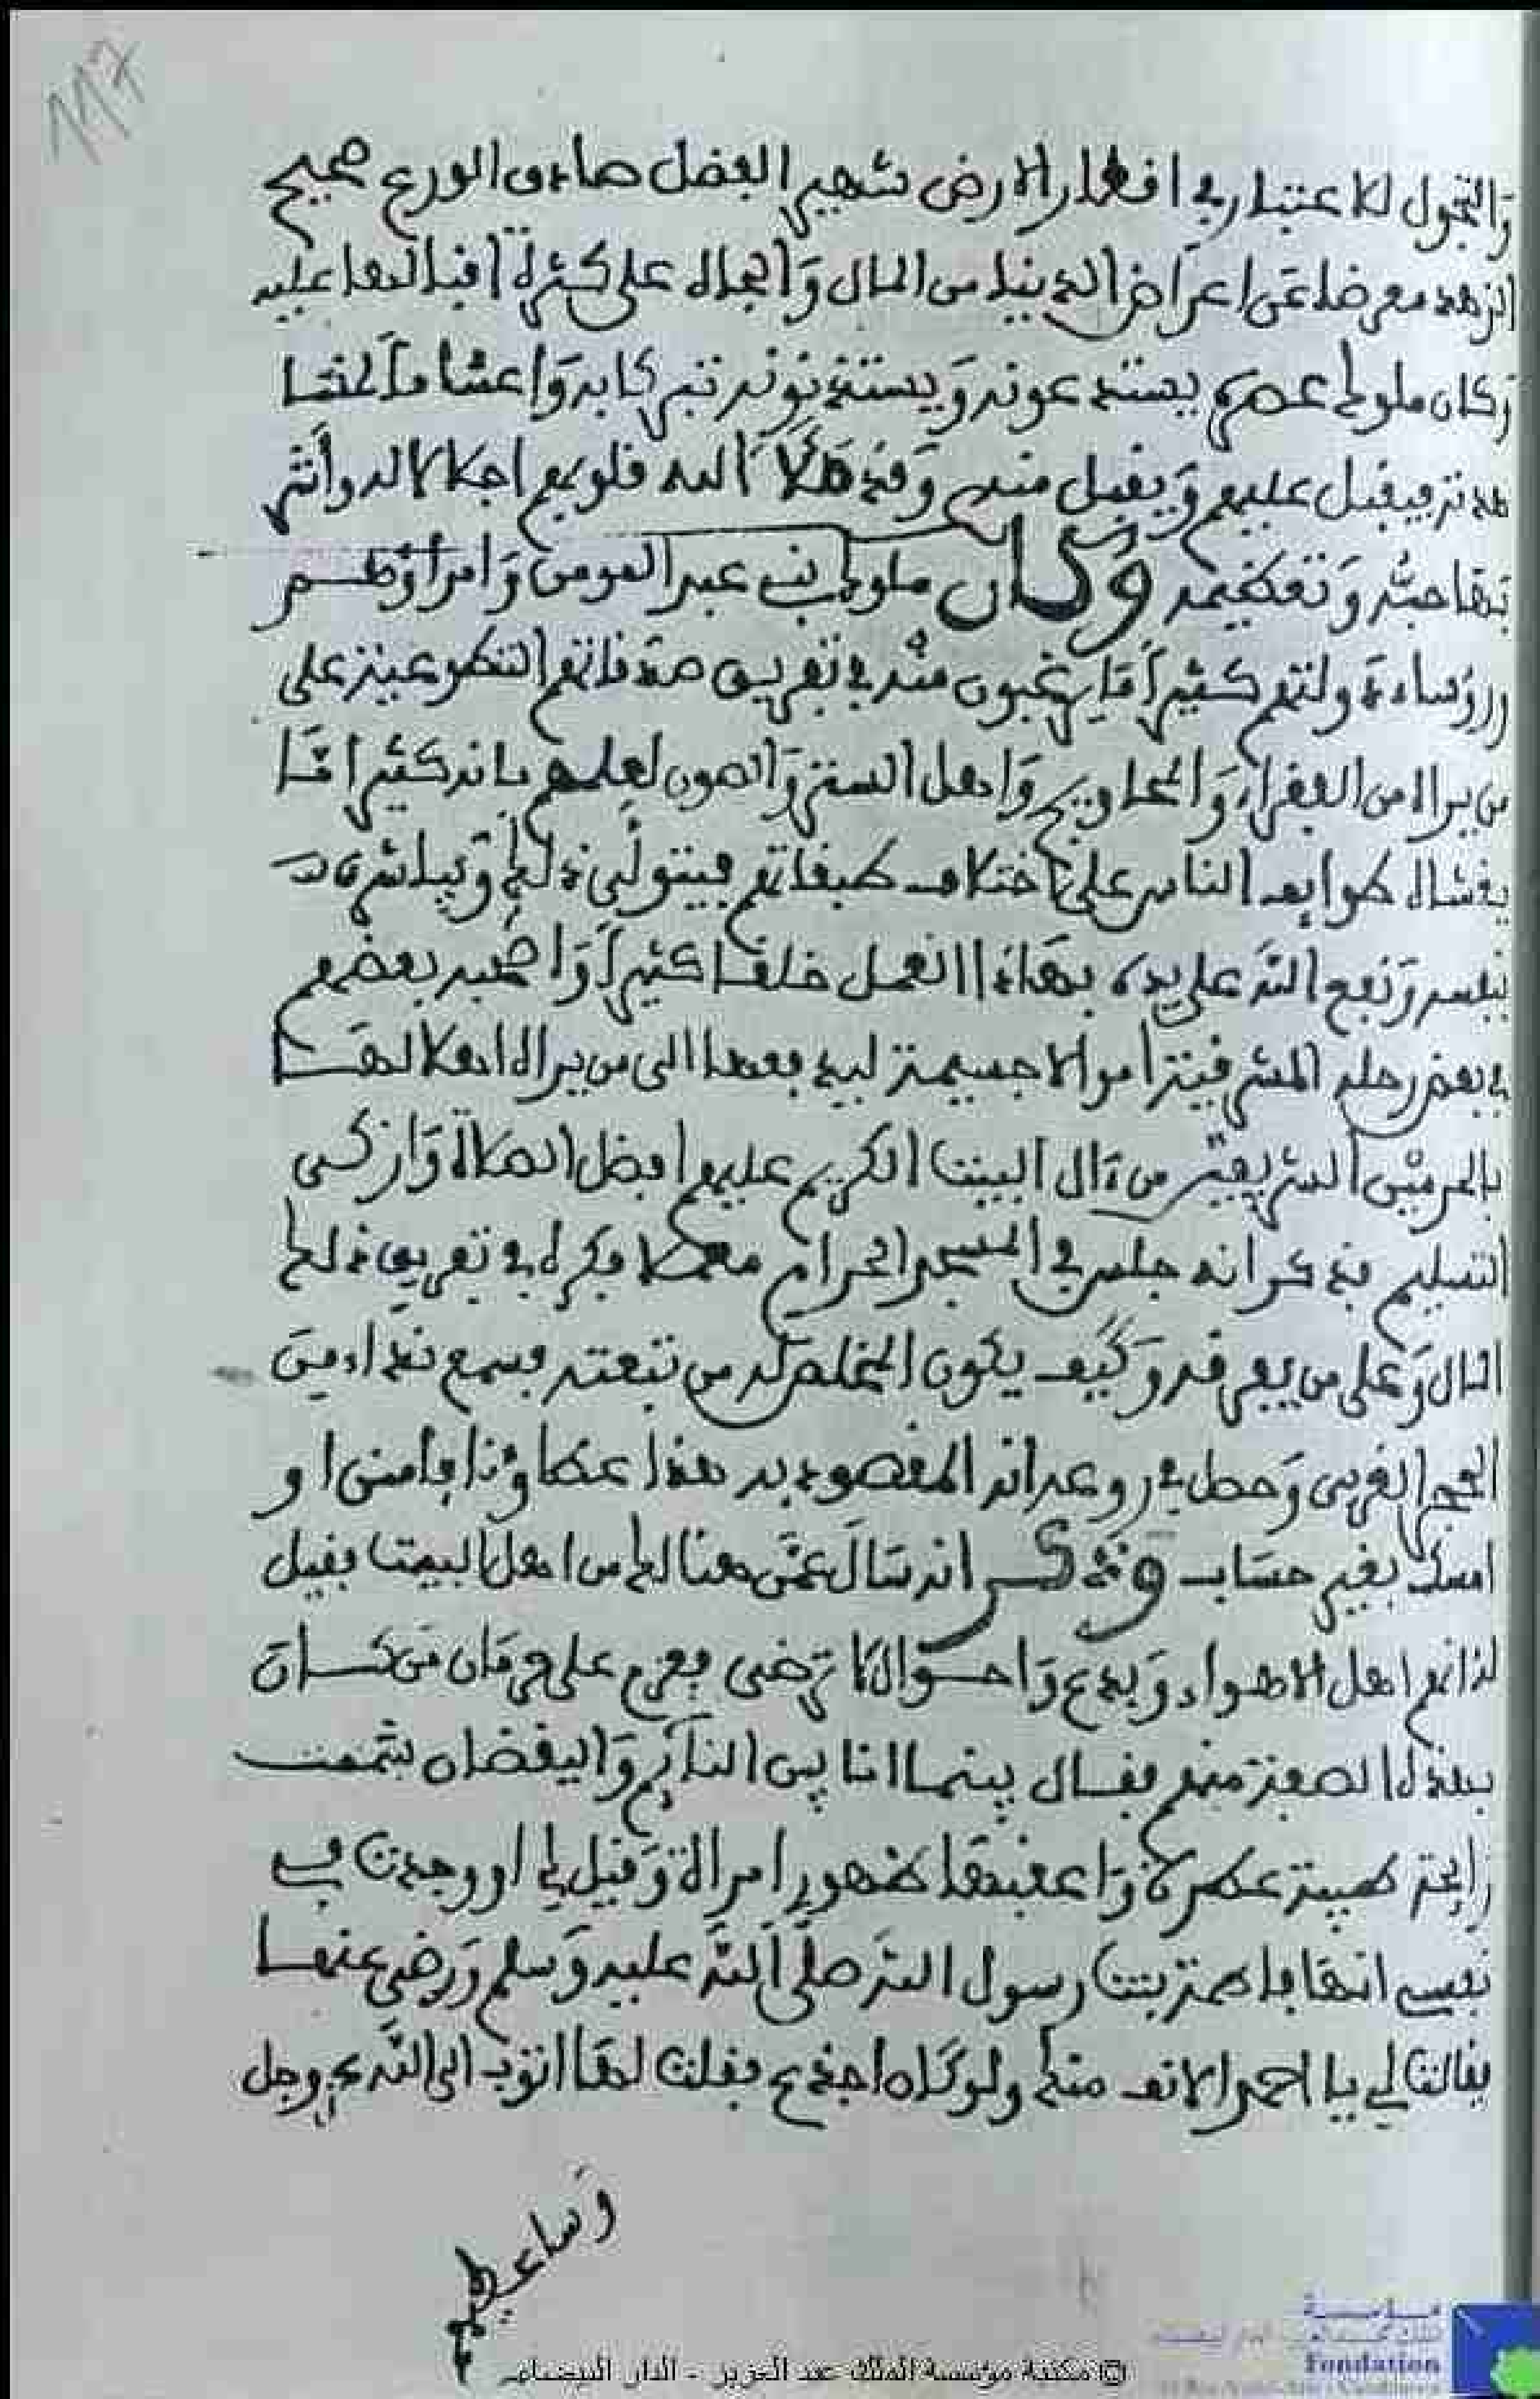 117
والتجول للاعتبار في اقطار الارض شهير الفضل صادق الورع صحيح
الزهد معرضا عن اعراض الدنيا من المال والجاه على كثرة اقبالها عليه
وكان ملوك عصره يستدعونه ويستدنونه تبركا به واغتناما لخشا
هدته فيقبل عليهم ويقبل منهم وقد ملأ الله قلوبهم اجلالا له وأثر
بفاحته وتعظيمه وكان ملوك بني عبد المومن وامراؤهم
ورؤساء دولتهم كثيرا ما يرغبون منه في تفريق صدقاتهم التطوعية على
من يراه من الفقراء والمحاويج واهل الستر والصون لعلمهم بانه كثيرا ما
يغشاه طوايف الناس على اختلاف طبقاتهم فيتولى ذلك ويباشره
بنفسه ونفع الله على يده بهاذا العمل خلقا كثيرا واصحبه بعضهم
في بعض رحله المشرقية اموالا جسيمة ليدفعها الى من يراه اهلا لها
بالحرمين الشريفين من ءال البيت الكريم عليهم افضل الصلاة وازكى
التسليم فذكر انه جلس في المسجد الحرام معملا فكره في تفريق ذلك
المال وعلى من يفرقه وكيف يكون المخلص له من تبعته فسمع نداء من
الحجر الغربي وحصل في روعه انه المقصود به هذا عطاؤنا فامنن او
امسك بغير حساب وذكر انه سال عمن هنالك من اهل البيت فقيل
له انهم اهل الاهواء وبدع واحوال لا ترضى فعزم على حرمان من كان
بهذه الصفة منهم فقال بينما انا بين النائم واليقضان شممت
رايحة طيبة عطرة واعقبها ظهور امراة وقيل لي او وجدت في
نفسي انها فاطمة بنت رسول الله صلى الله عليه وسلم ورضي عنها
فقالت لي يا احمد الانف منك ولو كان اجذع فقلت لها اتوب الى الله عز وجل
© مكتبة مؤسسة الملك عبد العزيز - الدار البيضاء
Fondation